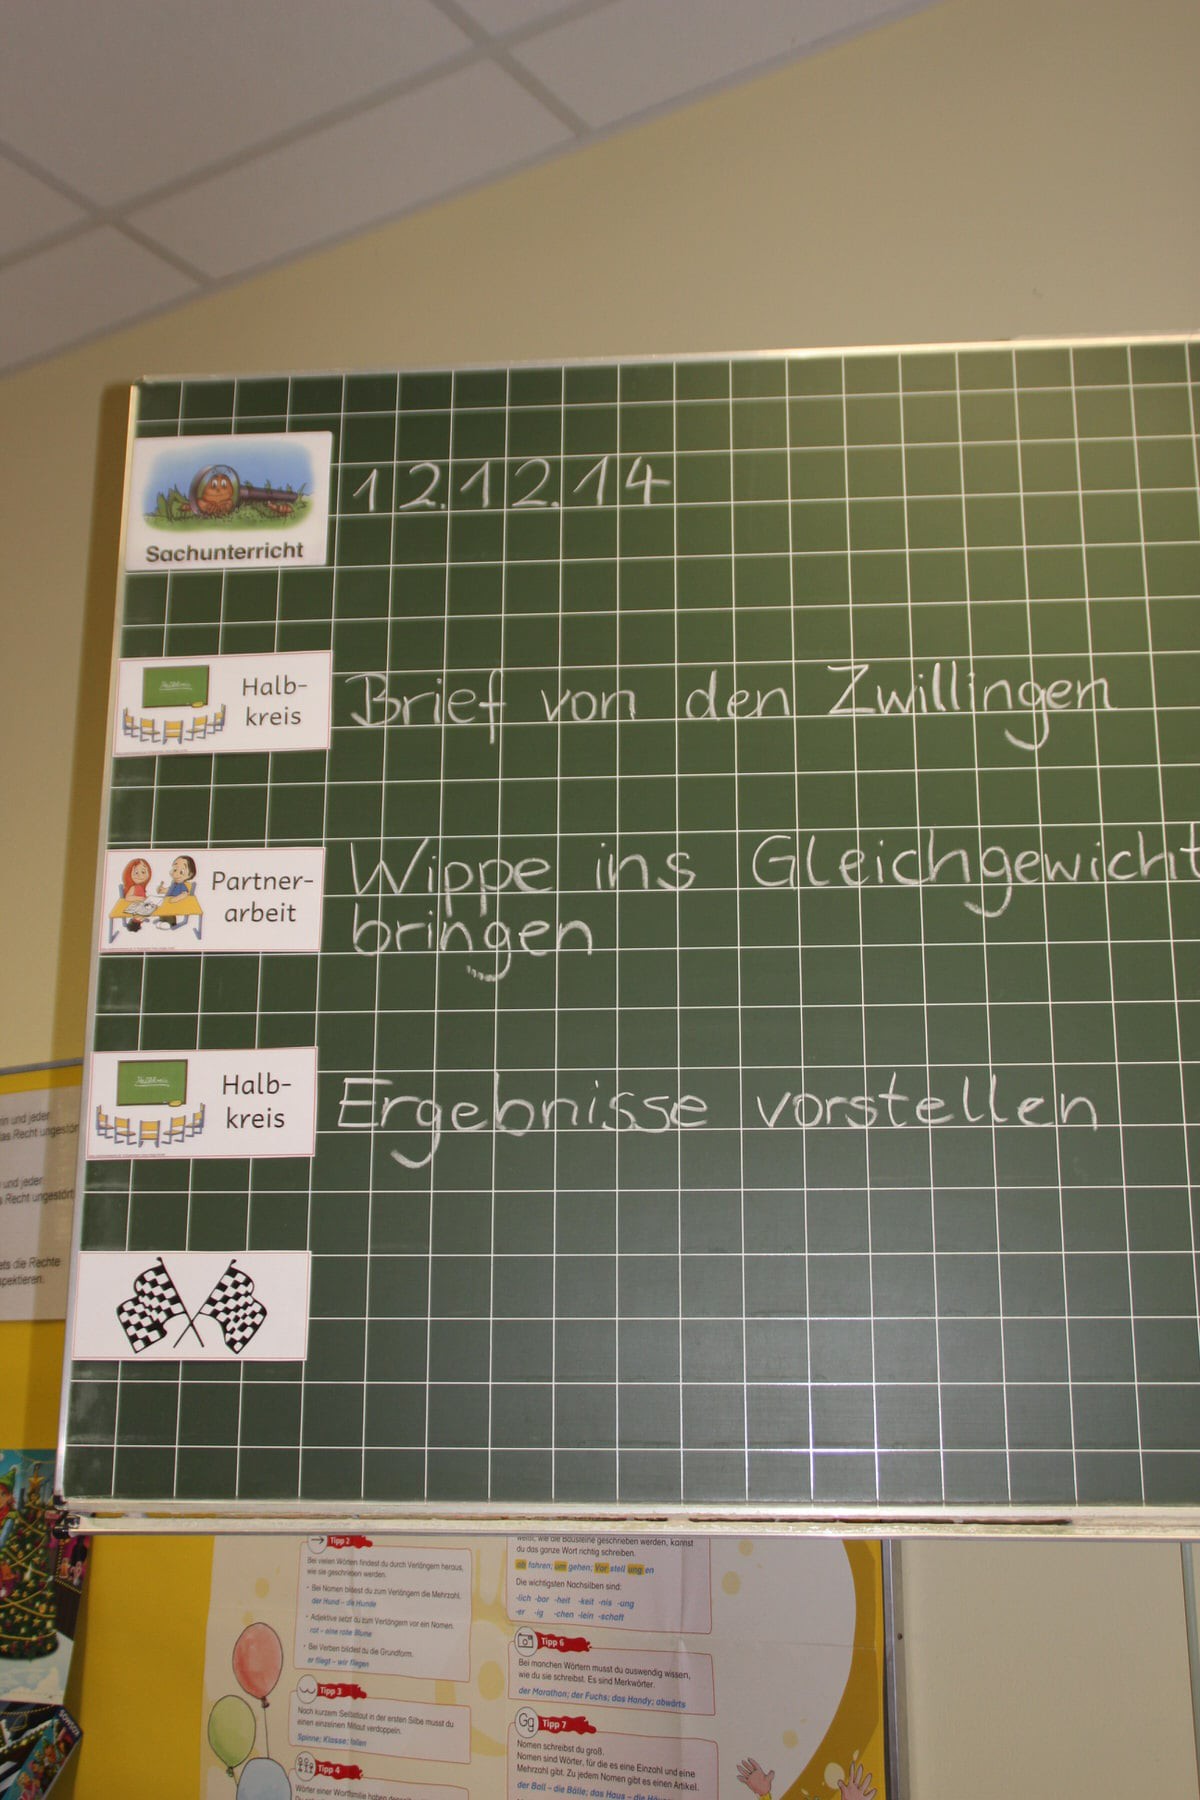 Sachunterricht
12.12.14
Halb-
kreis
Brief von den Zwillingen
Partner-
arbeit
Wippe ins Gleichgewicht
bringen
Halb-
kreis
Ergebnisse vorstellen
und jeder
das Recht ungestört
und jeder
Recht ungestört
die Rechte
Tipp 2
Bei vielen Wörtern findest du durch Verlängern heraus,
wie sie geschrieben werden.
· Bei Nomen bildest du zum Verlängern die Mehrzahl.
der Hund – die Hunde
· Adjektive setzt du zum Verlängern vor ein Nomen.
rot – eine rote Blume
· Bei Verben bildest du die Grundform.
er fliegt – wir fliegen
Tipp 3
Nach kurzem Selbstlaut in der ersten Silbe musst du
einen einzelnen Mitlaut verdoppeln.
Spinne; Klasse; fallen
Tipp 4
Wörter einer Wortfamilie haben
weißt, wie die Bausteine geschrieben werden, kannst
du das ganze Wort richtig schreiben.
ab fahren; um gehen; Vor stell ung en
Die wichtigsten Nachsilben sind:
-lich -bar -heit -keit -nis -ung
-er -ig -chen -lein -schaft
Tipp 6
Bei manchen Wörtern musst du auswendig wissen,
wie du sie schreibst. Es sind Merkwörter.
der Marathon; der Fuchs; das Handy; abwärts
Gg Tipp 7
Nomen schreibst du groß.
Nomen sind Wörter, für die es eine Einzahl und eine
Mehrzahl gibt. Zu jedem Nomen gibt es einen Artikel.
der Ball – die Bälle; das Haus – die